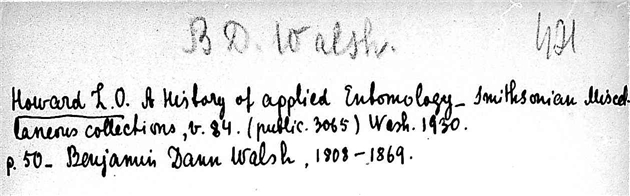 B D. Walsh.
Howard L.O. A History of applied Entomology_ Smithsonian Miscel-
laneous collections, v. 84. (public. 3065) Wash. 1930.
p. 50_ Benjamin Dann Walsh, 1808-1869.